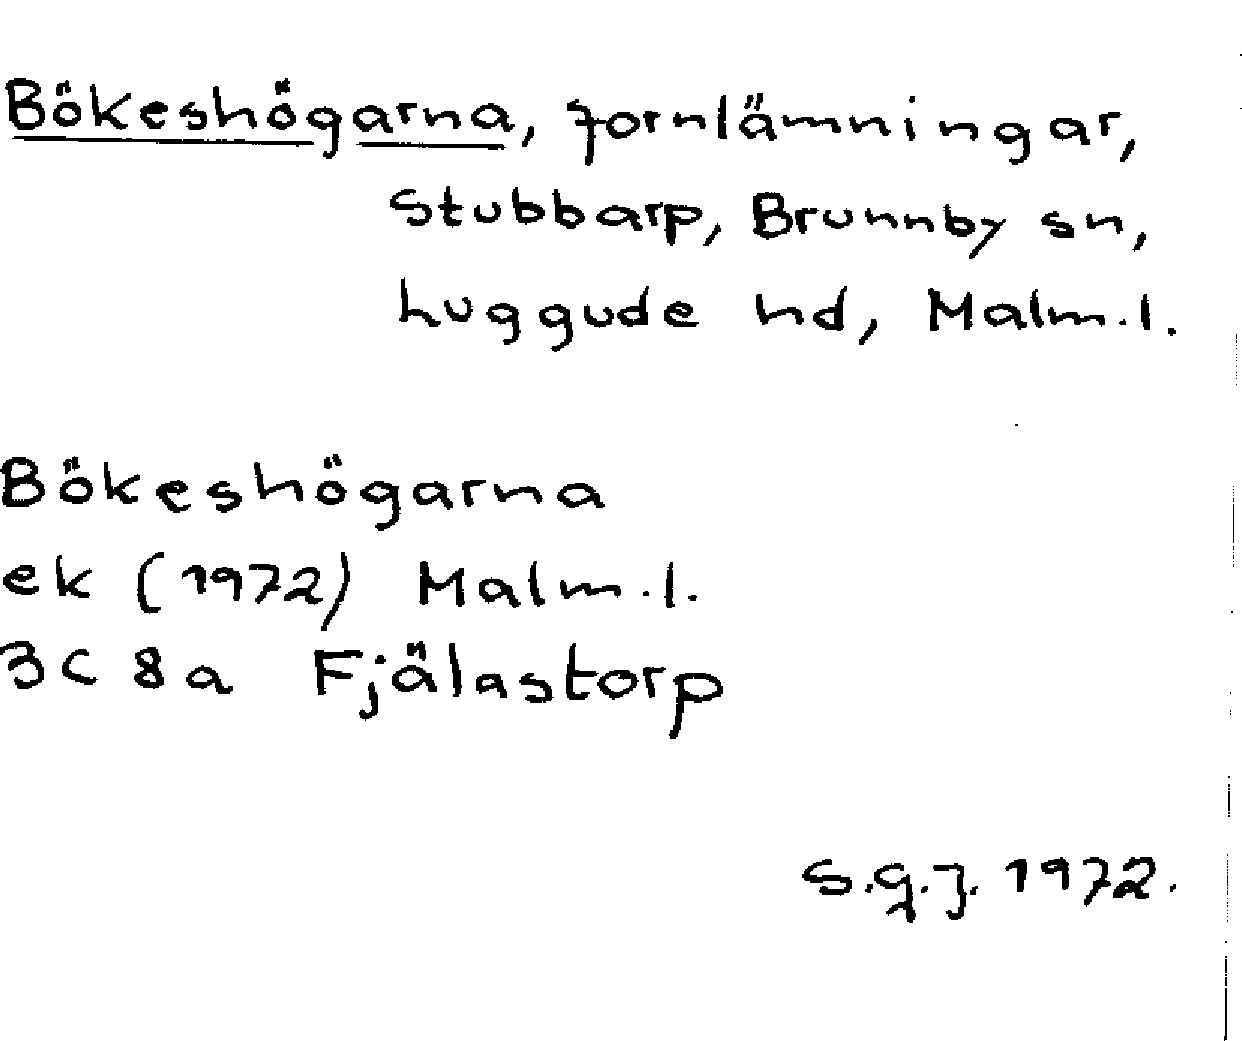 Bökeshögarna, fornlämningar,
Stubbarp, Brunnby sn,
Luggude hd, Malm.l.
Bökeshögarna
ek (1972) Malm.l.
3C 8a Fjälastorp
S.G.J. 1972.